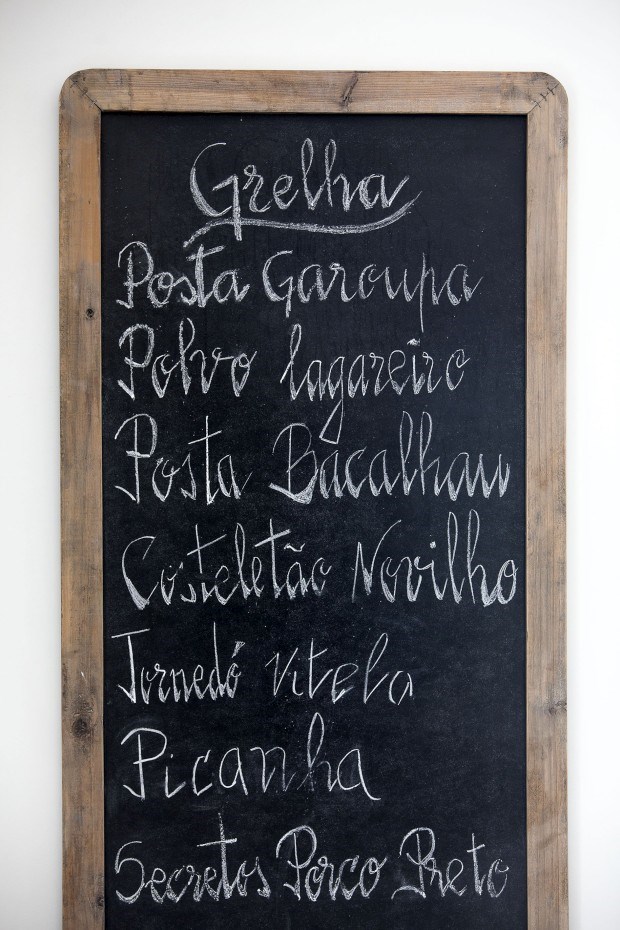 Grelha
Posta Garoupa
Polvo lagareiro
Posta Bacalhau
Costeletão Novilho
Tornedó Vitela
Picanha
Secretos Porco Preto